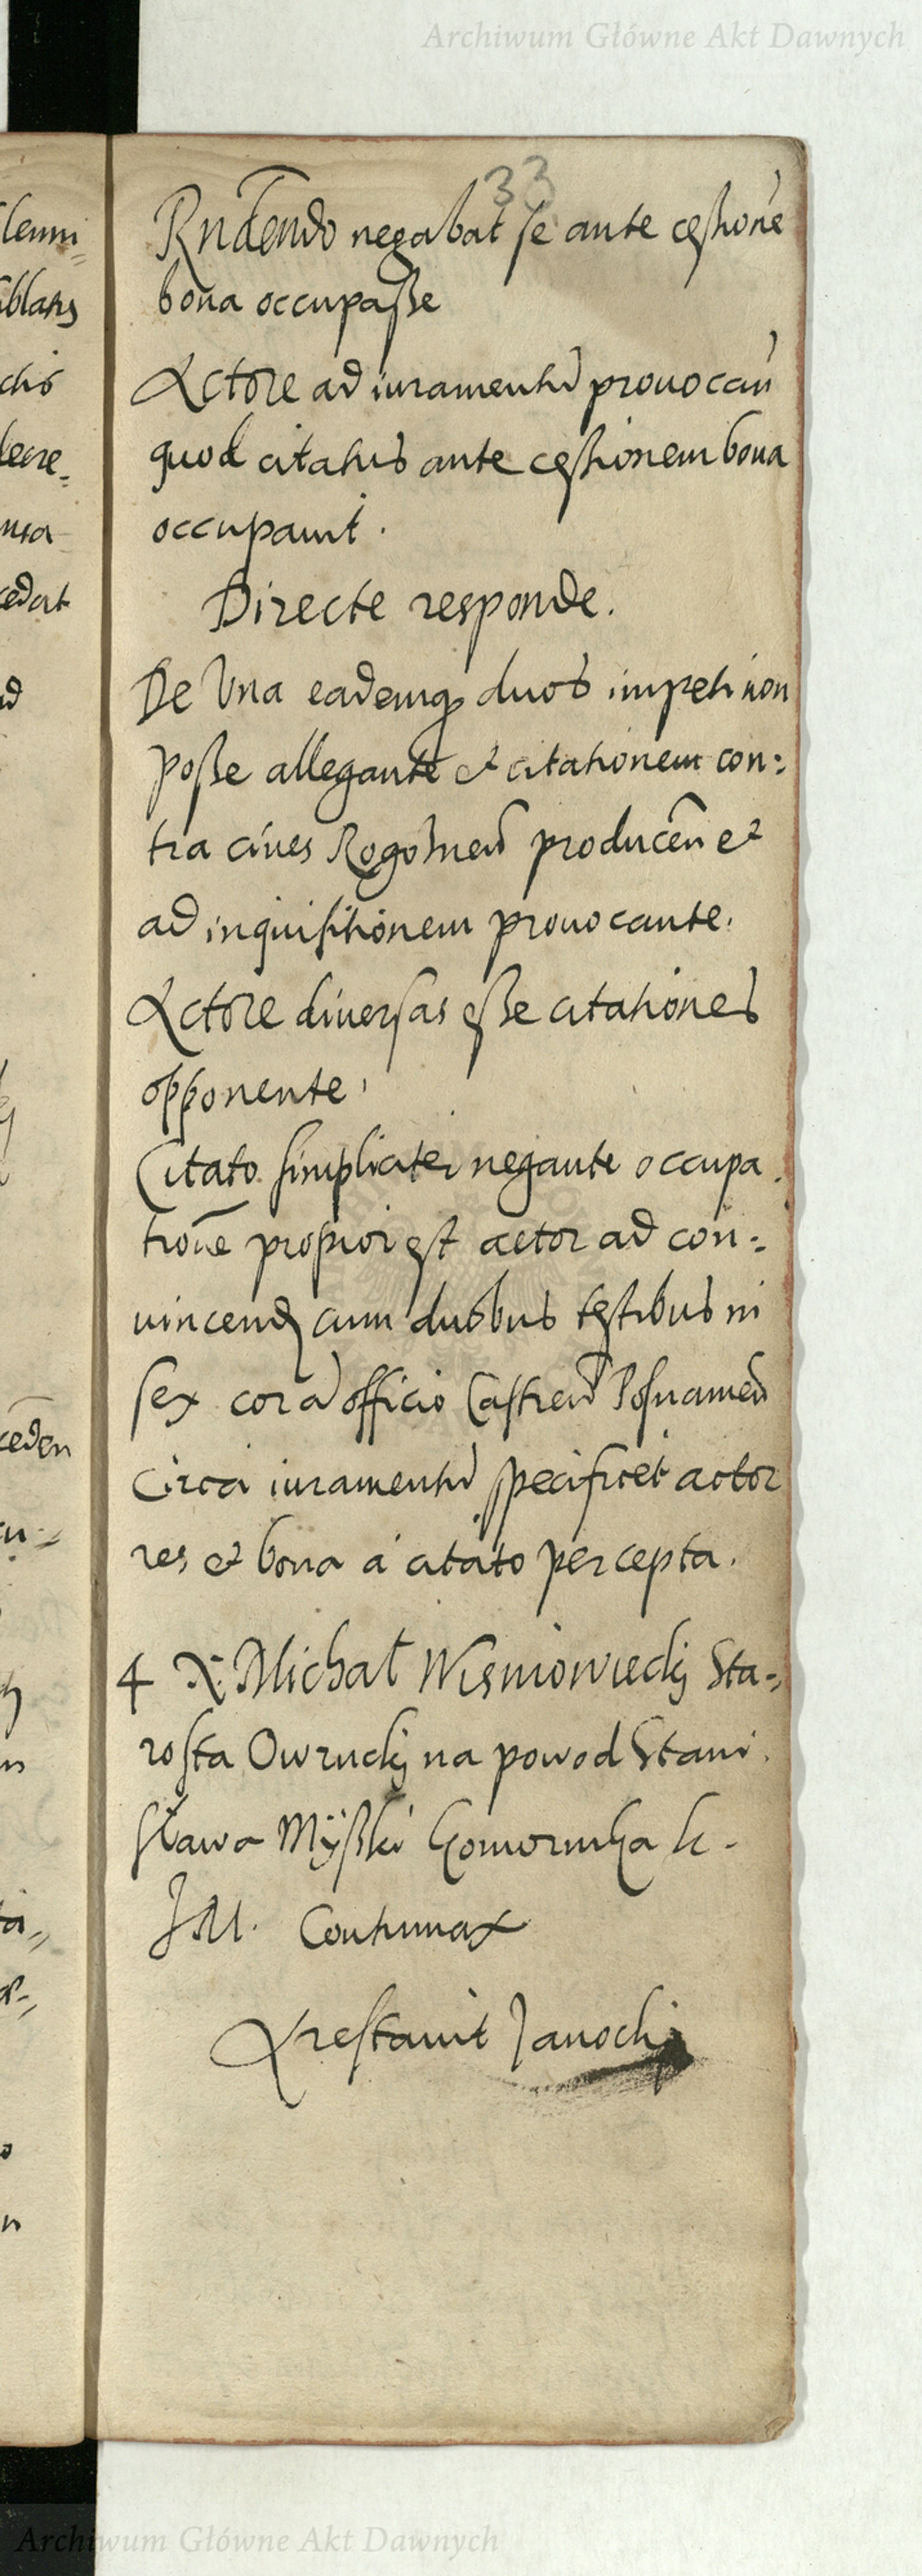 Archiwum Główne Akt Dawnych
33
Rndendo negabat se ante cessione
bona occupasse
Actore ad iuramentu provocan
quod citatus ante cessionem bona
occupavit.
Directe responde.
De Una eademq duos impeti non
posse allegante et citationem con:
tra cives Rogosnen producen et
ad inquisitionem provocante.
Actore diversas esse citationes
opponente,
Citato simpliciter negante occupa
tione propior est actor ad con:
vincend cum duobus testibus in
sex cora officio Castren Posnanien
Circa iuramentu specificet actor
res et bona a citato percepta.
4 X. Michał Wisniowiecky Sta-
rosta Owrucky na powod Stani
sława Myszki Komornika K.
JM. Contumax
Arestavit Janocki
lenni
ublatis
ctis
decre
cedat
ceden
Archiwum Główne Akt Dawnych